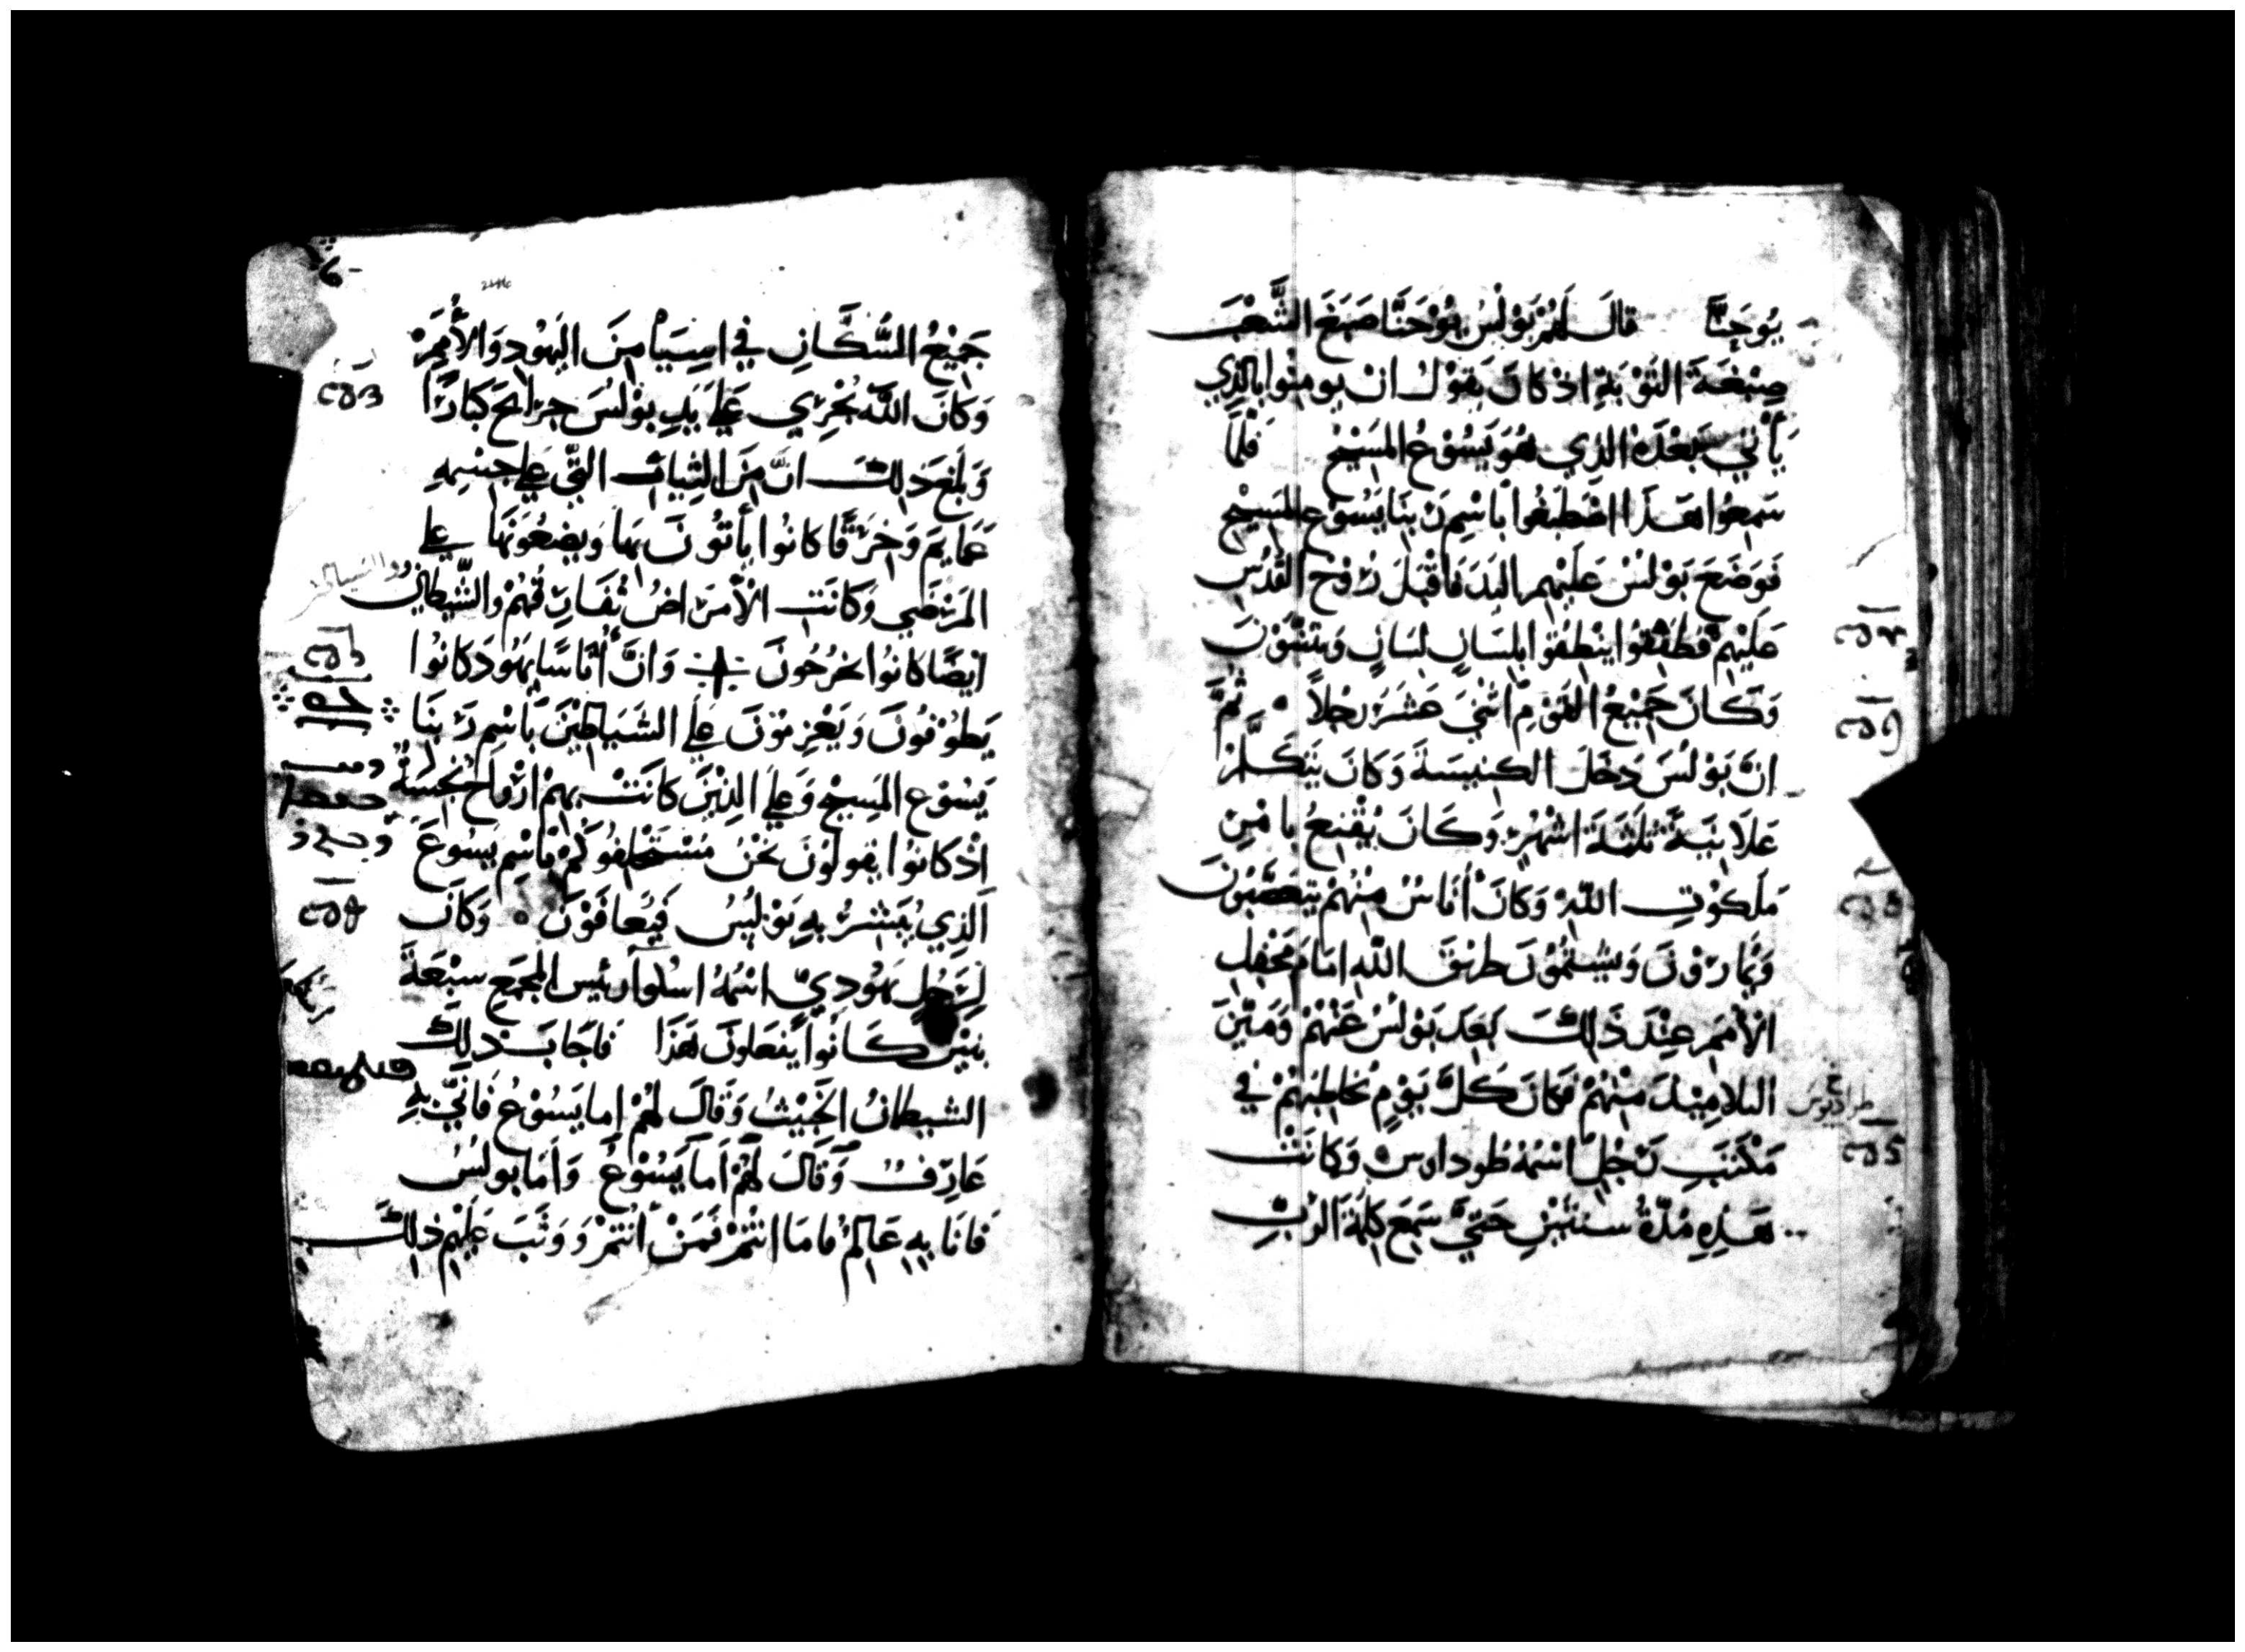 يُوحَنَّا قالَ لَهُمْ بَوْلُسُ يُوْحَنَّا صَبَغَ الشَّعْبَ
صِبْغَةَ التَّوْبَةِ اذْ كانَ يَقوْلُ انْ يومِنْوا بالذِي
يَأْتي بَعْدَهُ الذِي هُوَ يَسُوْعُ المَسِيْحُ فَلمَّا
سَمِعُوا هَذَا اصْطَبَغُوا بَاسْمِ رَبِنَا يَسُوْعِ المَسِيْحِ
فَوَضَعَ بَوْلسُ عَلَيْهِم اليَدَ فَاقْبَلَ رُوْحُ القُدُسِ
عَلَيْهِمْ فَطَفِقُوا يَنْطِقُوا بِلِسَانٍ لِسَانٍ وَيَتَنَبَّوْنَ
وَكَانَ جَمِيْعُ القَوْمِ اثْنَي عَشَرَ رَجُلاً ثُمَّ
انَّ بَوْلُسَ دَخَلَ الكنِيسَةَ وَكَانَ يَتَكَلَّمُ
عَلَانِيَةً ثَلثَةَ اشْهُرٍ وَكَانَ يُقْنِعُ بامْرِ
مَلَكوْتِ اللّهِ وَكانَ أُنَاسٌ مِنْهُمْ يتعَصَّبُوْنَ
وَيُمارُوْنَ وَيَشتُمُوْنَ طرِيْقَ اللّهِ امَامَ مَحْفِلِ
الأُمَمِ عِنْدَ ذَلِكَ بَعَدَ بَوْلُسُ عَنْهُمْ وَمَيَّزَ
التلامِيْذَ مِنْهُمْ فَكانَ كُلَّ يَوْمٍ يُخاطِبُهُمْ في
مَكْتَبِ رَجُلٍ اسْمُهُ طُوداوسْ وَكانَتْ
هَذِهِ مُدَّةُ سنتَيْنِ حَتَّي سَمِعَ كَلِمَةَ الرَّبِّ
طرادنوس
جَمِيْعُ السُّكَّانِ في اسِيَا مِنَ اليَهُودِ وَالأُمَمِ
وَكانَ اللّه يُجْرِي عَلَى يَدِ بوْلُسَ جرَائحَ كِبَارًا
وَبَلَغَ ذلِكَ انَّ مِنَ الثِيابِ التِّي عَلي جِسْمِهِ
عَمايِمَ وَخِرَقًا كانُوا يأْتُونَ بِهَا وَيضَعُونَهَا علي
المَرْضَي وَكانَتِ الأَمْرَاضُ تُفَارِقُهُمْ والشَّيَطاين
ايْضًا كانُوا يخرُجُونَ وَانَّ أُناسًا يَهُودَ كانُوا
يَطُوْفُونَ وَيَعْزِمُوْنَ عَلَي الشَيَاطِيْنَ بَاسْمِ رَبِنَا
يَسُوْعِ المَسِيْحِ وَعَلَي الذِيْنَ كانَتْ بِهِمْ ارْوَاحٌ نَجِسَةٌ
اذْ كانُوا يقولُوْنَ نَحْنُ مُسْتَحْلِفُوكُمْ باسْمِ يَسُوعَ
الَّذِي يُبَشِّرُ بِهِ بَوْلُسُ فَيُعافَوْنَ وَكَانَ
لِرَجُلٍ يَهُودِيٍّ اسْمُهُ اسْلَوا رَئيس المَجْمَعِ سبْعَةُ
بَنِيْنَ كَانُوا يَفعَلونَ هَذَا فَاجَابَ ذلِكَ
الشيطَانُ الخَبِيْثُ وَقَالَ لهُمْ اما يَسُوْعُ فَانِّي بِهِ
عَارِفٌ وَقَالَ لَهُمْ اَما يَسُوْعُ وَاَمَا بولُسُ
فانَا بِهِ عَالِمٌ فامَا انْتُمْ فَمَنْ أَنْتُمْ وَوَثَبَ عَلَيْهِمْ ذلِكَ